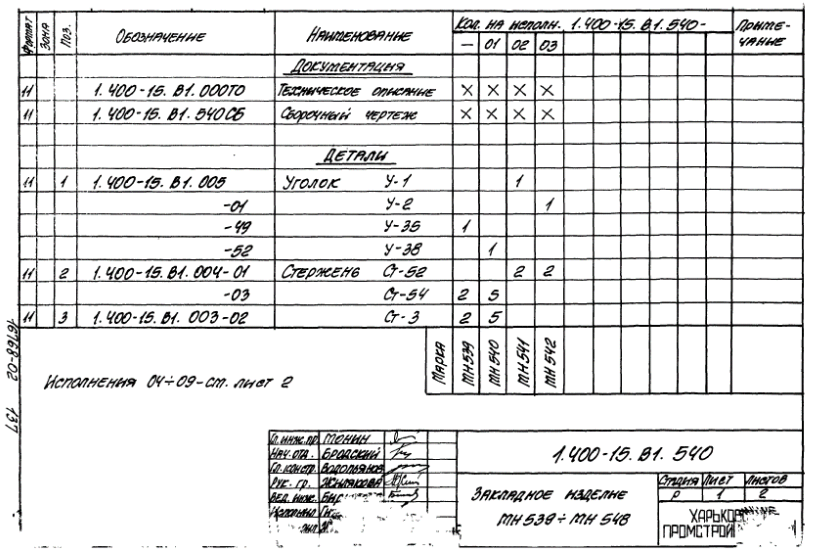 Формат Зона Поз. Обозначение Наименование Кол. на исполн. 1.400-15.В1.540- Приме-
чание
— 01 02 03
Документация
11 1.400-15.В1.000ТО Техническое описание × × × ×
11 1.400-15.В1.540СБ Сборочный чертеж × × × ×
Детали
11 1 1.400-15.В1.005 Уголок У-1 1
-01 У-2 1
-49 У-35 1
-52 У-38 1
11 2 1.400-15.В1.004-01 Стержень Ст-52 2 2
-03 Ст-54 2 5
11 3 1.400-15.В1.003-02 Ст-3 2 5
Марка МН539 МН540 МН541 МН542
Исполнения 04÷09-см. лист 2
16768-02 137
Гл. инж. пр. Монин
Нач. отд. Бродский
Гл. констр. Водопьянов
Рук. гр. Жилякова
Вед. инж.
Исполнил
1.400-15.В1.540
Закладное изделие
МН539÷МН548
Стадия Лист Листов
Р 1 2
ПРОМСТРОЙ